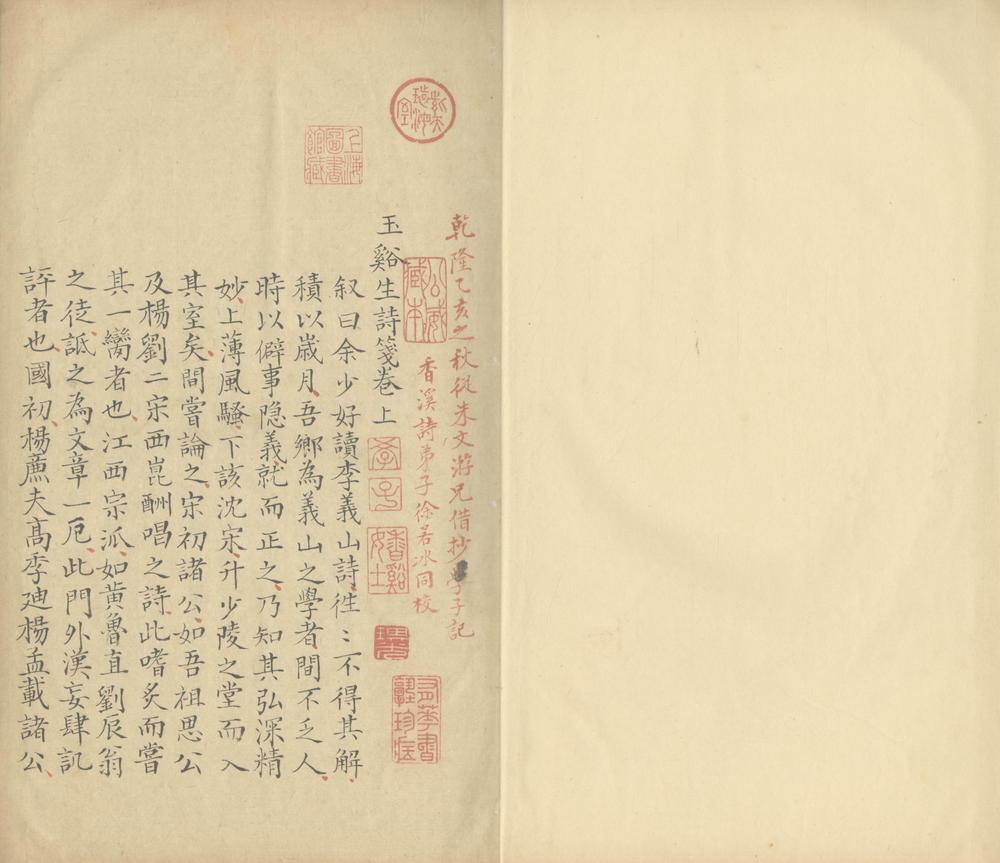 乾隆乙亥之秋從朱文游兄借抄學子記
香溪詩弟子徐若冰同校
玉谿生詩箋卷上
叙曰余少好讀李義山詩徃〻不得其解
積以歲月吾鄉為義山之學者間不乏人
時以僻事隐義就而正之乃知其弘深精
妙上薄風騷下該沈宋升少陵之堂而入
其室矣間嘗論之宋初諸公如吾祖思公
及楊劉二宋西崑酬唱之詩此嗜炙而嘗
其一臠者也江西宗派如黄魯直劉辰翁
之徒詆之為文章一厄此門外漢妄肆訕
評者也國初楊廉夫髙季廸楊孟載諸公
上海
圖書
館藏
公威
藏本
香谿
女士